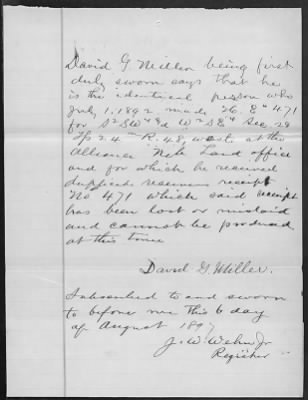 David G Miller being first
duly sworn says that he
is the identical person who
July 1, 1892 made H. E. 471
for S² SW⁴ & W² SE⁴ Sec 29
Tp 24 R. 48, west at the
Alliance Neb Land office
and for which he received
duplicate receivers receipt
No 471 which said receipt
has been lost or mislaid
and cannot be produced
at this time
David G. Miller.
Subscribed to and sworn
to before me this 6 day
of August 1897
J. W. Wehn Jr
Register